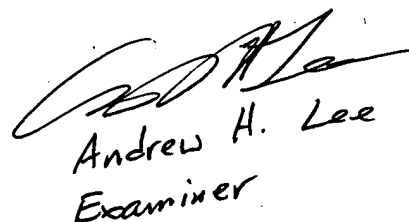 Andrew H. Lee
Examiner